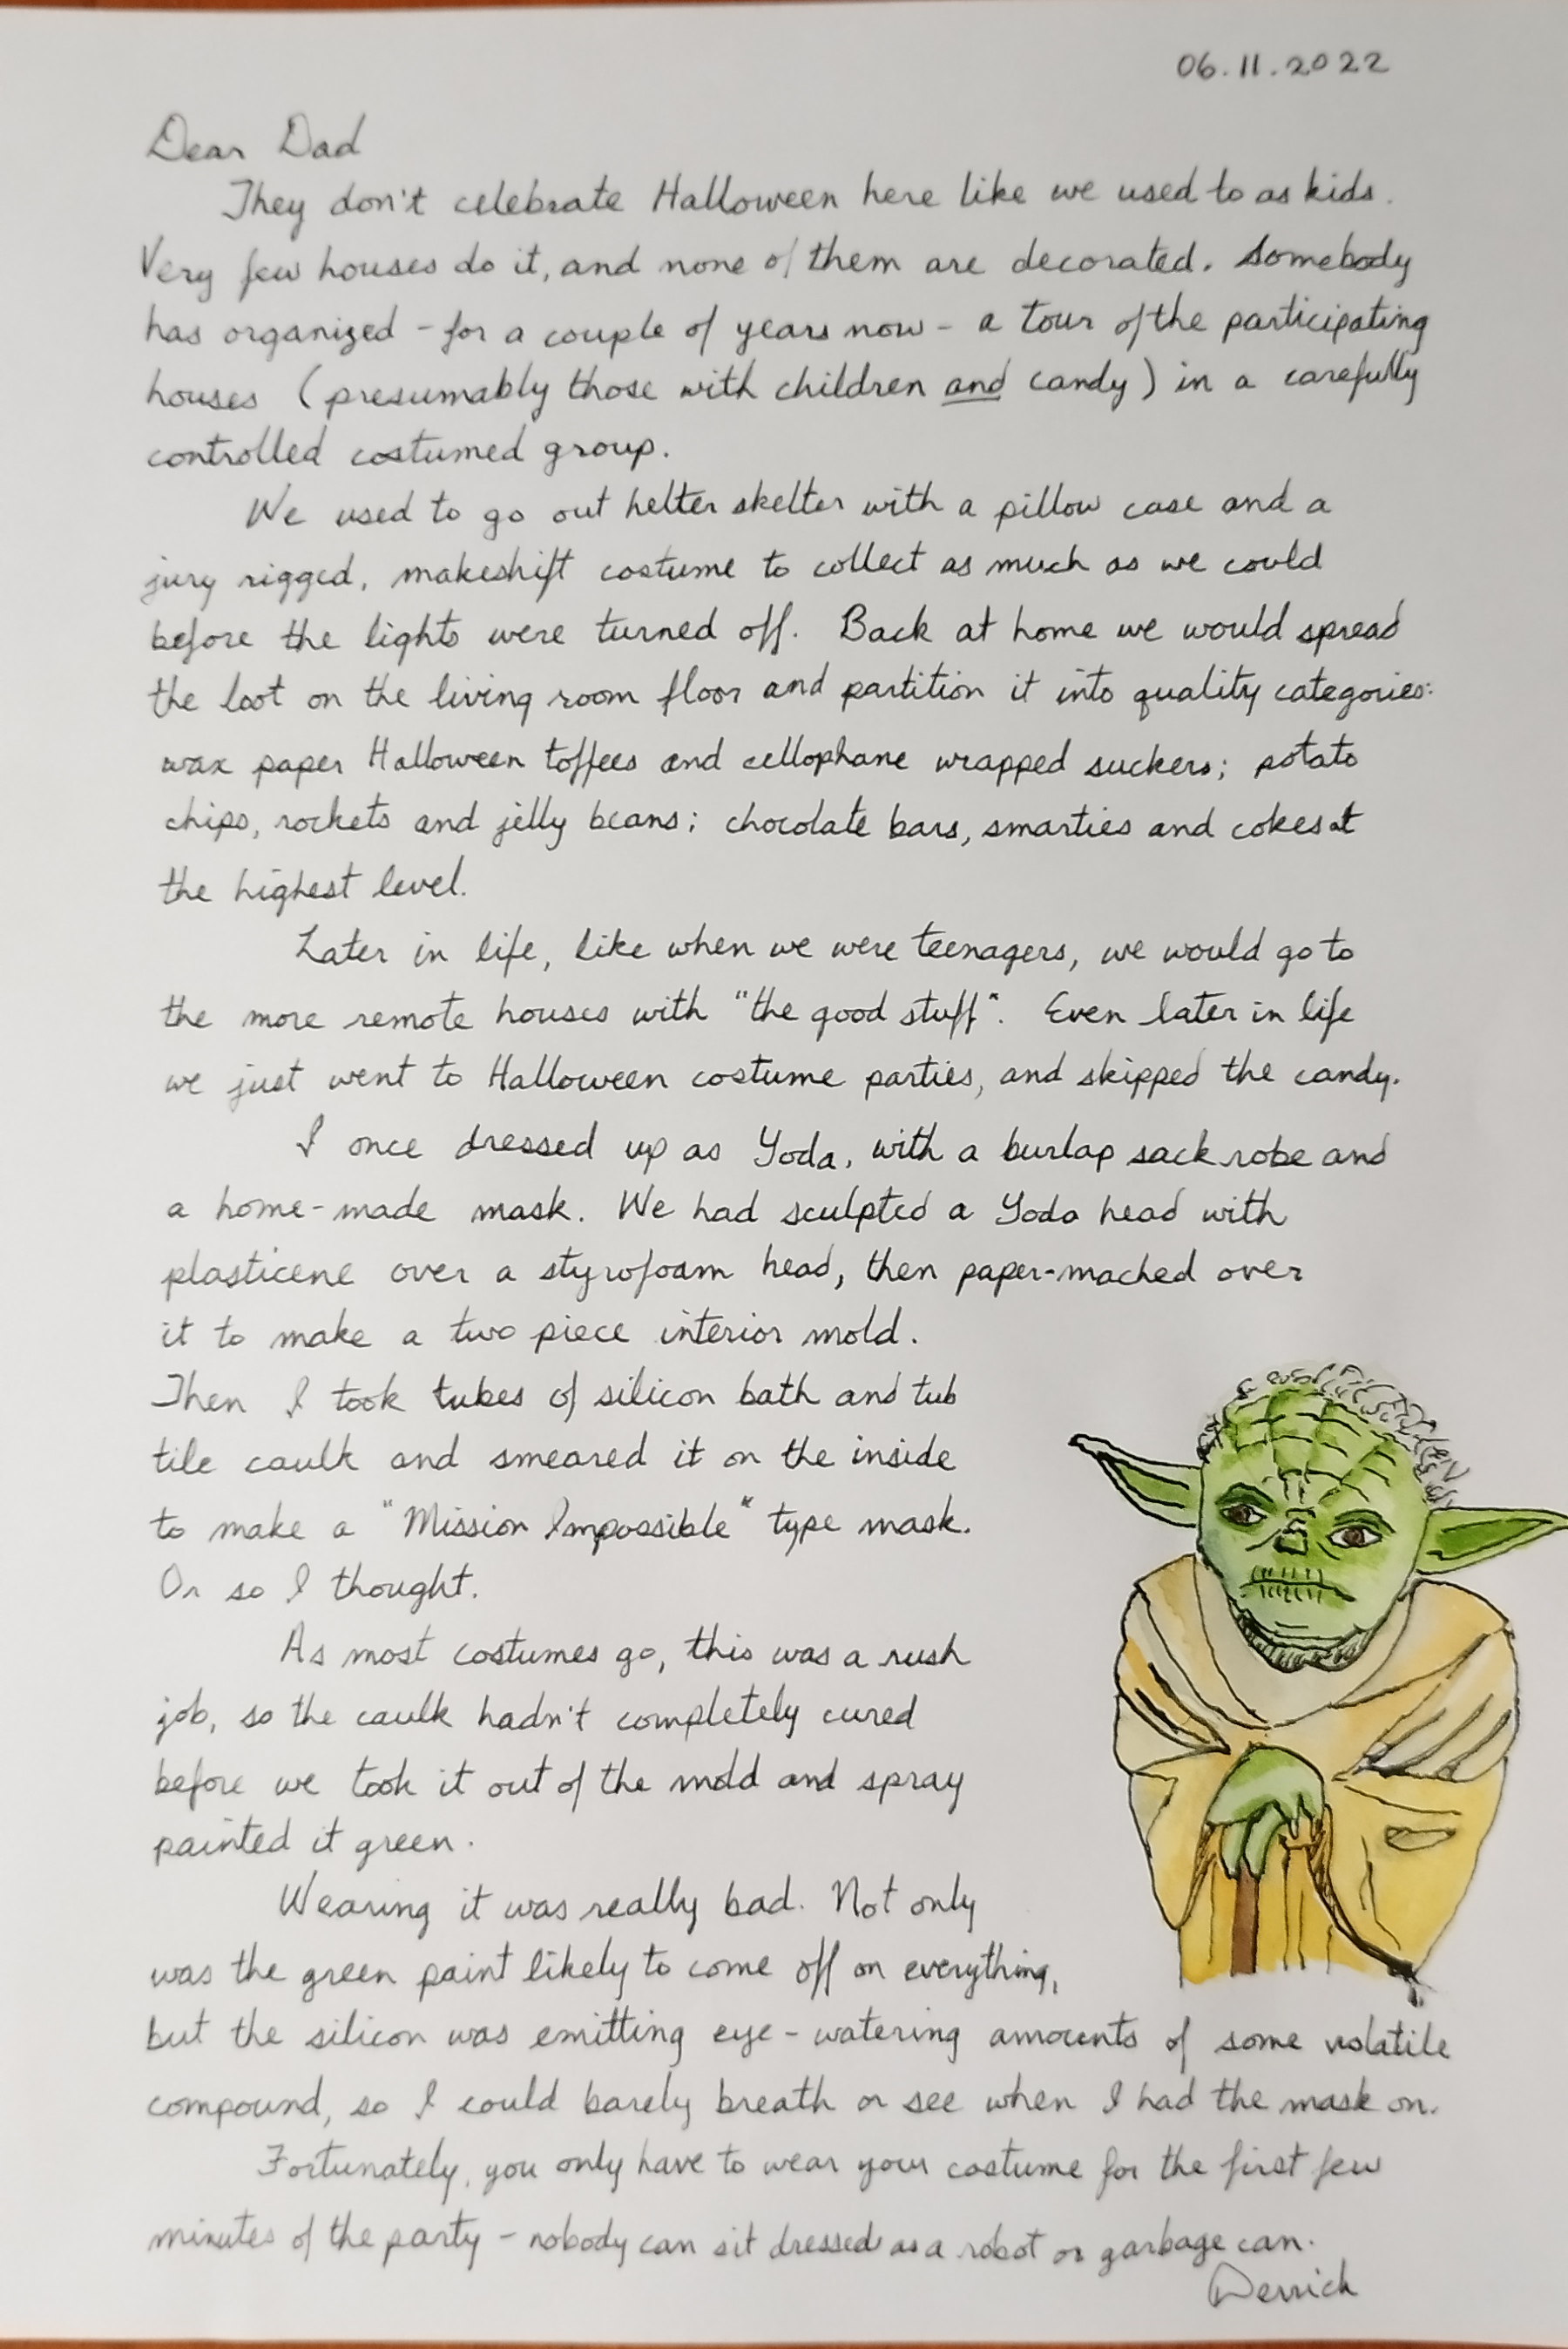 06.11.2022
Dear Dad
They don't celebrate Halloween here like we used to as kids.
Very few houses do it, and none of them are decorated. Somebody
has organized - for a couple of years now - a tour of the participating
houses (presumably those with children and candy) in a carefully
controlled costumed group.
We used to go out helter skelter with a pillow case and a
jury rigged, makeshift costume to collect as much as we could
before the lights were turned off. Back at home we would spread
the loot on the living room floor and partition it into quality categories:
wax paper Halloween toffees and cellophane wrapped suckers; potato
chips, rockets and jelly beans; chocolate bars, smarties and cokes at
the highest level.
Later in life, like when we were teenagers, we would go to
the more remote houses with "the good stuff". Even later in life
we just went to Halloween costume parties, and skipped the candy.
I once dressed up as Yoda, with a burlap sack robe and
a home-made mask. We had sculpted a Yoda head with
plasticene over a styrofoam head, then paper-mached over
it to make a two piece interior mold.
Then I took tubes of silicon bath and tub
tile caulk and smeared it on the inside
to make a "Mission Impossible" type mask.
Or so I thought.
As most costumes go, this was a rush
job, so the caulk hadn't completely cured
before we took it out of the mold and spray
painted it green.
Wearing it was really bad. Not only
was the green paint likely to come off on everything,
but the silicon was emitting eye-watering amounts of some volatile
compound, so I could barely breath or see when I had the mask on.
Fortunately, you only have to wear your costume for the first few
minutes of the party - nobody can sit dressed as a robot or garbage can.
Derrick